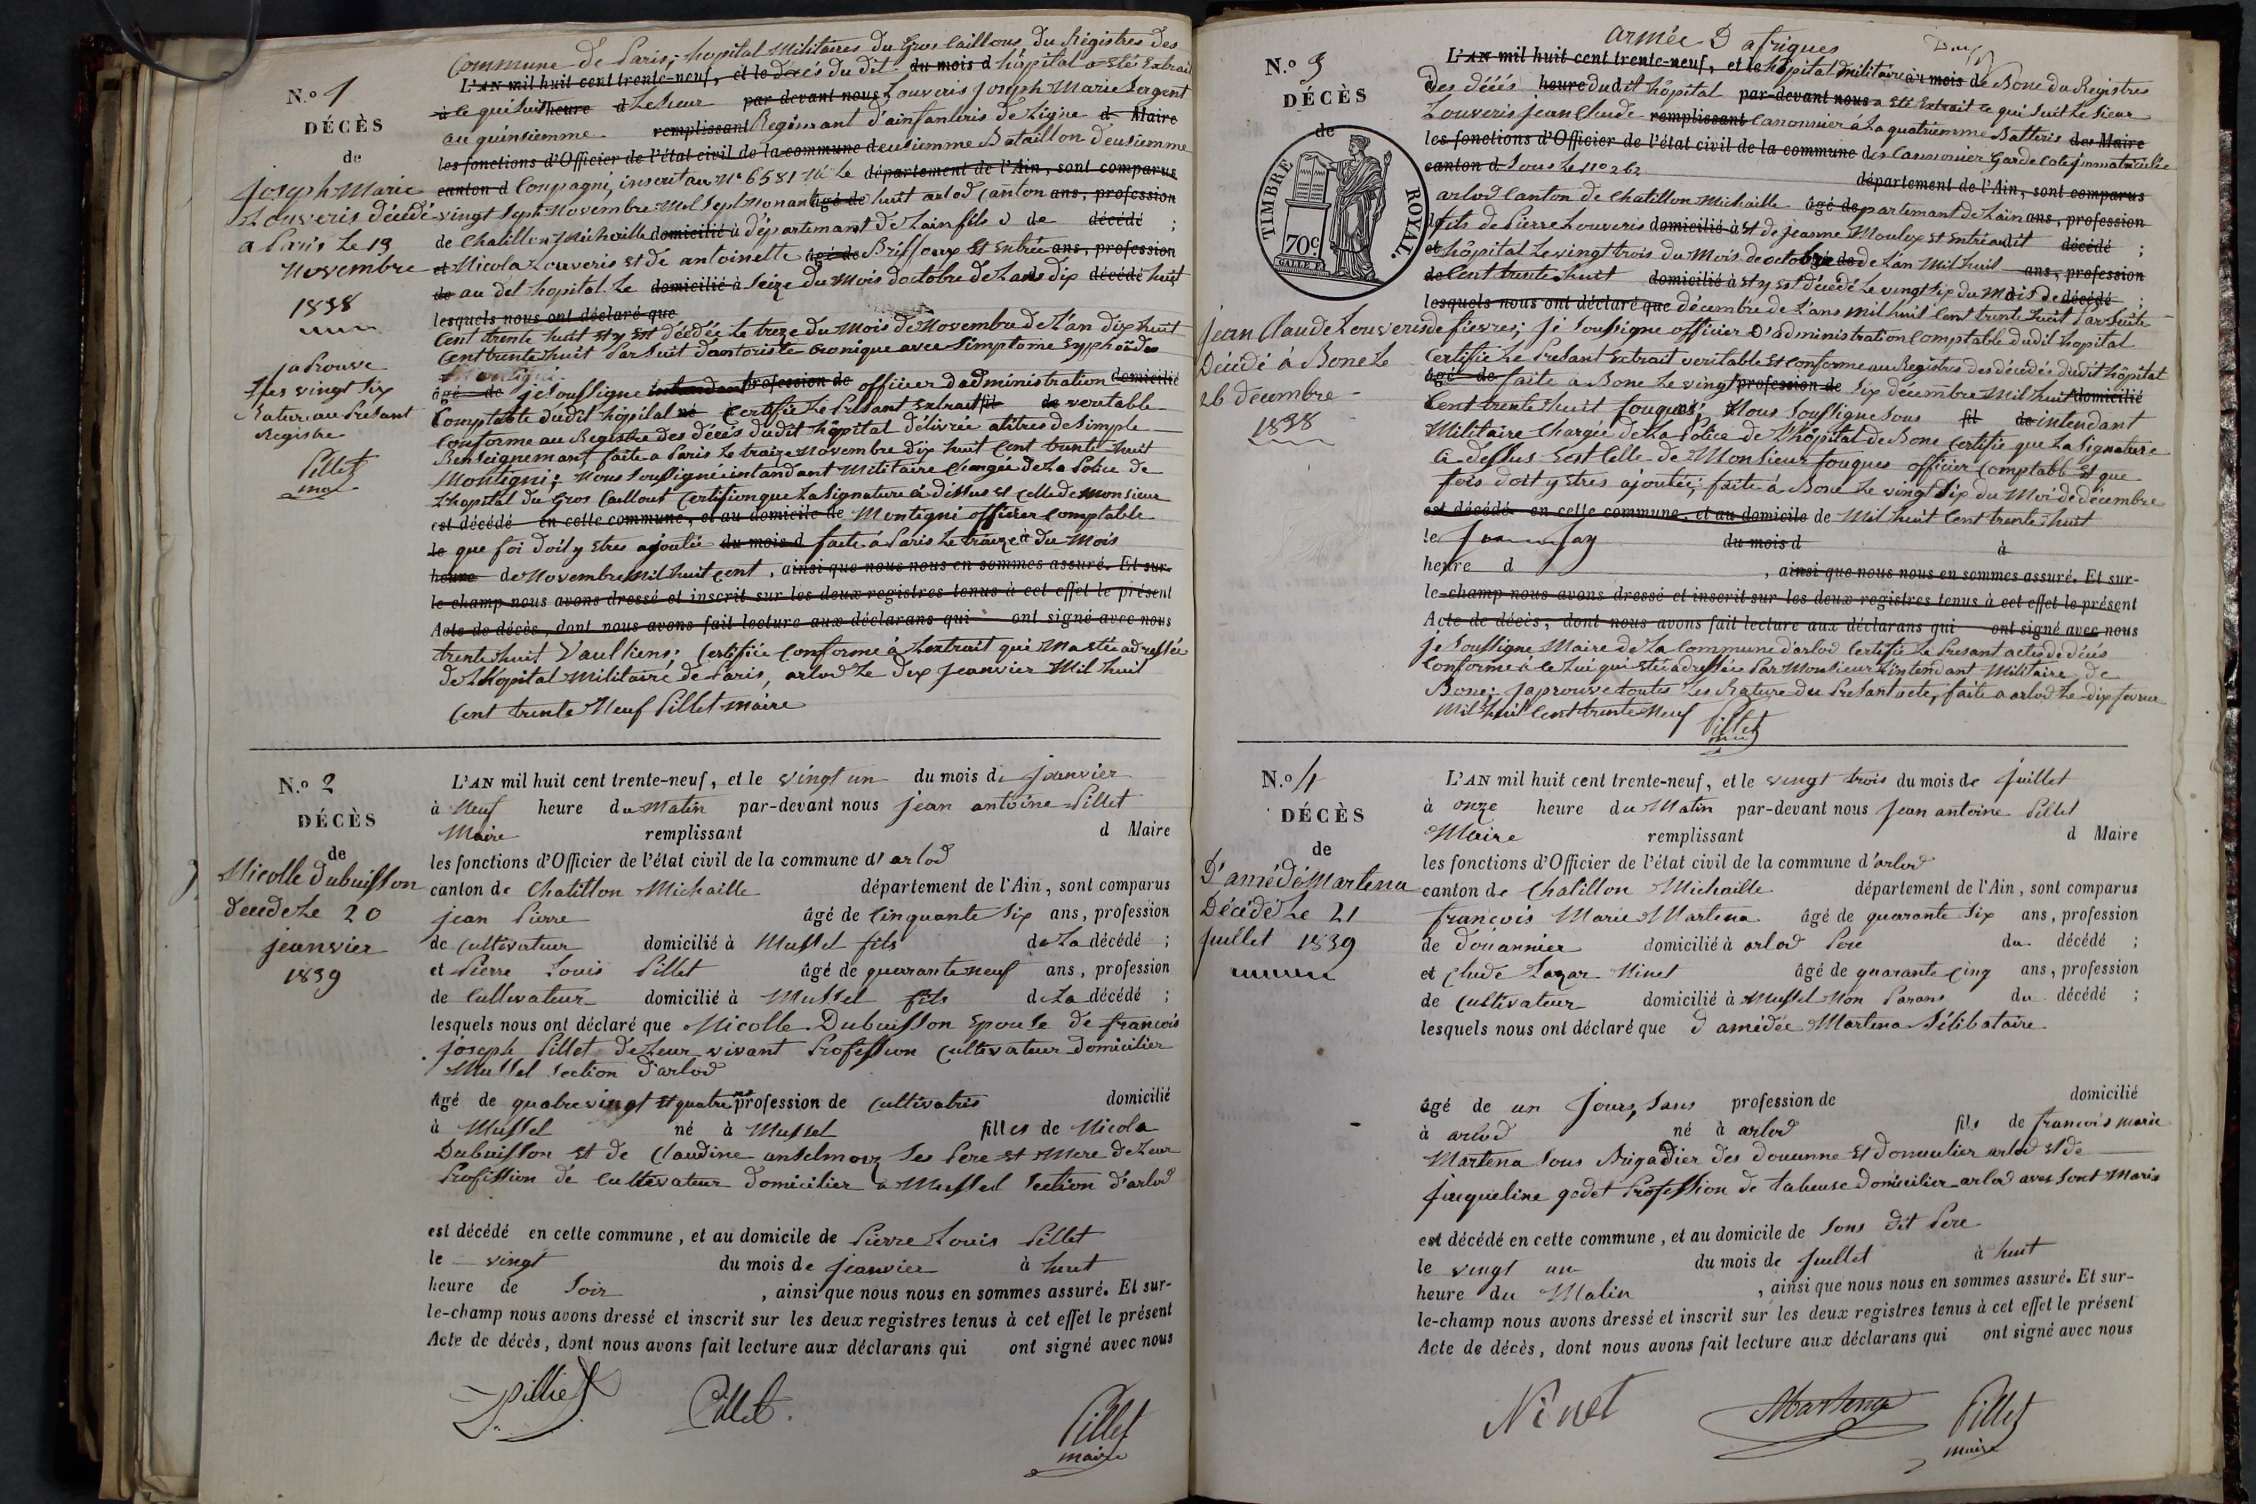 Commune de Paris, hopital Militaires du Gros Caillous, du Registres des
N.º 1
DÉCÈS
de
Joseph Marie
Louveris décédé
a Paris le 13
Novembre
1838
japrouve
les vingt six
Rature au Présant
Registre
Pillet
L'AN mil huit cent trente-neuf, et le décés du dit du mois d hôpital a Eté Extrait
à ce qui suit heure d Le sieur par devant nous Louveris Joseph Marie Sergent
au quinsiemme remplissant Regimant d'ainfanteris de Ligne d Maire
les fonctions d'Officier de l'état civil de la commune deusiemme Bataillon deusiemme
canton d Compagné, inscrit au Nº 6581 né le département de l'Ain, sont comparus
vingt sept Novembre Mil Sept Nonante âgé de huit arlod Canton ans, profession
de Chatillon Michaille domicilié à département de Lain fils d de décédé ;
et Nicola Louveris et de antoinette âgé de Briffoux Et Entrée ans, profession
de au det hopital le domicilié à Seize du Mois doctobre de Lan dix décédé huit
lesquels nous ont déclaré que
Cent trente huit et y est décédée le treze du Mois de Novembre de l'an dix huit
Cent trente huit Par suit cronique avec simptome
âgé de je soussigne profession de officier d'administration domicilié
Comptable dudit hôpital né Certifie le Présant Extrait fil de veritable
Conforme au Registre des décés dudit hôpital délivrée a titres de Simple
Renseignemant, faite a Paris le traize Novembre dix huit Cent trente huit
Montigni; Nous soussigné intandant Militaire Chargée de La Police de
L'hopital du Gros Caillout Certifion que La Signature ci dessus est Celle de Monsieur
est décédé en cette commune, et au domicile de Montigni officier Comptable
le que foi doit y etres ajoutée du mois d faite á Paris le traize à du Mois
heure de Novembre Mil huit Cent , ainsi que nous nous en sommes assuré. Et sur-
le champ nous avons dressé et inscrit sur les deux registres tenus à cet effet le présent
Acte de décès, dont nous avons fait lecture aux déclarans qui ont signé avec nous
trente huit Vaulliens; Certifiée Conforme á Lextrait qui Ma eté adressée
de L'hôpital Militaire de Paris, arlod le dix Jeanvier Mil huit
Cent trente Neuf Pillet maire
N.º 2
DÉCÈS
de
Nicolle Dubuisson
décédé le 20
jeanvier
1839
L'AN mil huit cent trente-neuf, et le vingt un du mois de jeanvier
à Neuf heure du Matin par-devant nous jean antoine Pillet
Maire remplissant d Maire
les fonctions d'Officier de l'état civil de la commune d'arlod
canton de Chatillon Michaille département de l'Ain, sont comparus
jean Pierre âgé de Cinquante Six ans, profession
de Cultivateur domicilié à Mussel fils de La décédé ;
et Pierre Louis Pillet âgé de quarante neuf ans, profession
de Cultivateur domicilié à Mussel fils de La décédé ;
lesquels nous ont déclaré que Nicolle Dubuisson Epouse de francois
joseph Pillet de Leur vivant Profession Cultivateur domicilier
Mussel Section d'arlod
âgé de quatre vingt et quatre profession de Cultivatris domicilié
à Mussel né à Mussel filles de Nicola
Dubuisson et de Claudine anselmoz Ses Pere et Mere de Leur
Profission de Cultivateur domicilier a Mussel Section d'arlod
est décédé en cette commune, et au domicile de Pierre Louis Pillet
le vingt du mois de jeanvier à huit
heure de Soir , ainsi que nous nous en sommes assuré. Et sur-
le-champ nous avons dressé et inscrit sur les deux registres tenus à cet effet le présent
Acte de décès, dont nous avons fait lecture aux déclarans qui ont signé avec nous
Pilliet
Pillet
Pillet
maire
armée D afriques
N.º 3
DÉCÈS
de
TIMBRE ROYAL
70 c
Jean Claude Louveris
Décédé à Bone Le
26 décembre
1838
L'AN mil huit cent trente-neuf, et le hôpital militaire du mois de Bone du Registres
Des décés heure dudit hôpital par-devant nous a Eté Extrait ce qui suit Le Sieur
Louveris Jean Claude remplissant Canonnier á La quatriemme Batteris des Maire
les fonctions d'Officier de l'état civil de la commune des Canonnier Garde Cote immatriculée
canton d Sous le Nº 262 département de l'Ain, sont comparus
arlod Canton de Chatillon Michaille âgé de partemant de Lain ans, profession
fils de Pierre Louveris domicilié à Et de jeanne Moulex Et Entrée au dit décédé ;
et hôpital Le vingt trois du Mois de octobre âgé de de L'an Mil huit ans, profession
de Cent trente huit domicilié à et y est décédé Le vingt Six du Mois de décédé ;
lesquels nous ont déclaré que décembre de L'ans Mil huit Cent trente huit Par Suite
de fievres; je soussigne officier D'administration Comptable dudit hôpital
Certifie Le Présant Extrait veritable Et Conforme au Registres des décédés dudit hôpital
âgé de faite a Bone le vingt profession de Six décembre Mil huit domicilié
Cent trente huit fouques; Nous soussigne Sous fil de intendant
Militaire Chargée de La Police de L'hôpital de Bone Certifie que La Signature
Ci dessus Est Celle de Monsieur fouques officier Comptable Et que
fois doit y Etres ajoutée; faite á Bone Le vingt Six du Moi de décembre
est décédé en cette commune, et au domicile de Mil huit Cent trente huit
le du mois d à
heure d , ainsi que nous nous en sommes assuré. Et sur-
le-champ nous avons dressé et inscrit sur les deux registres tenus à cet effet le présent
Acte de décès, dont nous avons fait lecture aux déclarans qui ont signé avec nous
je Soussigne Maire de La Commune d'arlod Certifie Le Présant actes de décés
Conforme á Ce Lui qui Eté adressée Par Monsieur L'intendant Militaire de
Bone; japrouve toutes Les Rature du Présant acte, faite a arlod Le dix fevrier
Mil huit Cent trente Neuf Pillet
N.º 4
DÉCÈS
de
D'amédé Martena
Décédé le 21
juillet 1839
L'AN mil huit cent trente-neuf, et le vingt trois du mois de juillet
à onze heure du Matin par-devant nous Jean antoine Pillet
Maire remplissant d Maire
les fonctions d'Officier de l'état civil de la commune d'arlod
canton de Chatillon Michaille département de l'Ain, sont comparus
françois Marie Martena âgé de quarante Six ans, profession
de douannier domicilié à arlod Pere du décédé ;
et Claude Lazar Ninet âgé de quarante Cinq ans, profession
de Cultivateur domicilié à Mussel Non Parans du décédé ;
lesquels nous ont déclaré que d amédée Martena Sélibataire
âgé de un Jours, Sans profession de domicilié
à arlod né à arlod fils de francois marie
Martena Sous Brigadier des douanne Et domicilier arlod Et de
Jacqueline godet Profession de taleuse domicilier arlod avec Sont Maris
est décédé en cette commune, et au domicile de Sons dit Pere
le vingt un du mois de Juillet à huit
heure du Matin , ainsi que nous nous en sommes assuré. Et sur-
le-champ nous avons dressé et inscrit sur les deux registres tenus à cet effet le présent
Acte de décès, dont nous avons fait lecture aux déclarans qui ont signé avec nous
Ninet
Martena
Pillet
maire